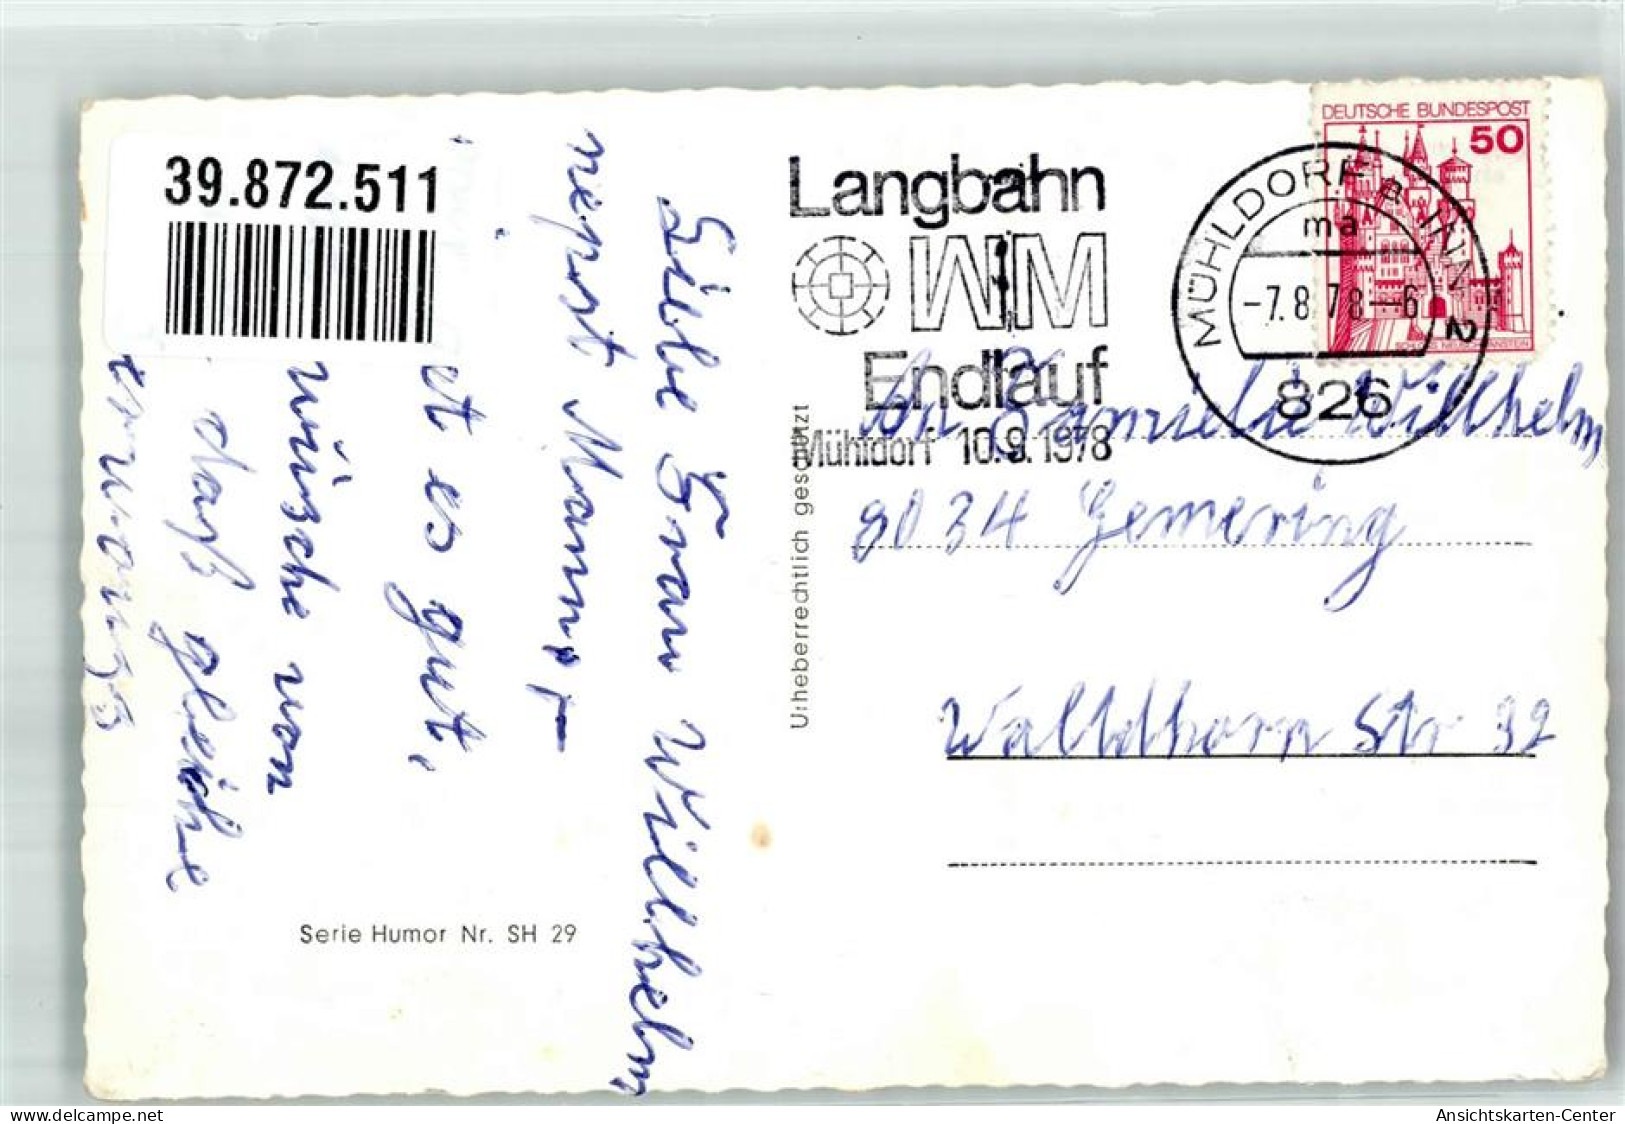 39.872.511
Liebe Frau Willhelm
nepst Mann,
et es gut,
wüsche von
daß gleiche
Serie Humor Nr. SH 29
Urheberrechtlich geschützt
Langbahn
WM
Endlauf
Mühldorf 10.9.1978
MÜHLDORF a INN 2
ma
-7.8.78-6
826
DEUTSCHE BUNDESPOST
50
An Familie Willhelm
8034 Gemering
Walldhorn Str 32
Ansichtskarten-Center